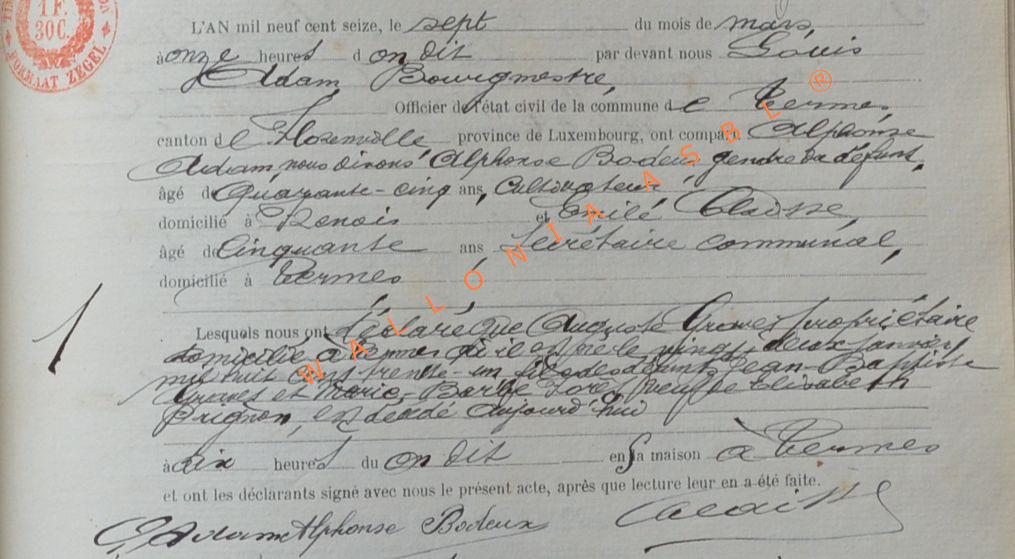 1 F.
30 C.
FORMAAT ZEGEL
L'AN mil neuf cent seize, le sept du mois de mars,
à onze heures d on dit par devant nous Louis
Adam, Bourgmestre,
Officier de l'état civil de la commune d e Termes,
canton d e Florenville province de Luxembourg, ont compar Alphonse
Adam, nous disons Alphonse Bodeux gendre du défunt,
âgé de quarante-cinq ans, Cultivateur,
domicilié à et Emile Claisse,
âgé de Cinquante ans Secrétaire communal,
domicilié à Termes
Lesquels nous ont déclaré que Auguste propriétaire
domicilié à Termes où il est né le vingt-deux janvier
mil huit cent trente-un fils des défunts Jean-Baptiste
et Marie-Barbe veuf de Elisabeth
Prignon, est décédé aujourd'hui
à dix heures du on dit en sa maison à Termes
et ont les déclarants signé avec nous le présent acte, après que lecture leur en a été faite.
Adam Alphonse Bodeux
WALLONIA ASBL ®